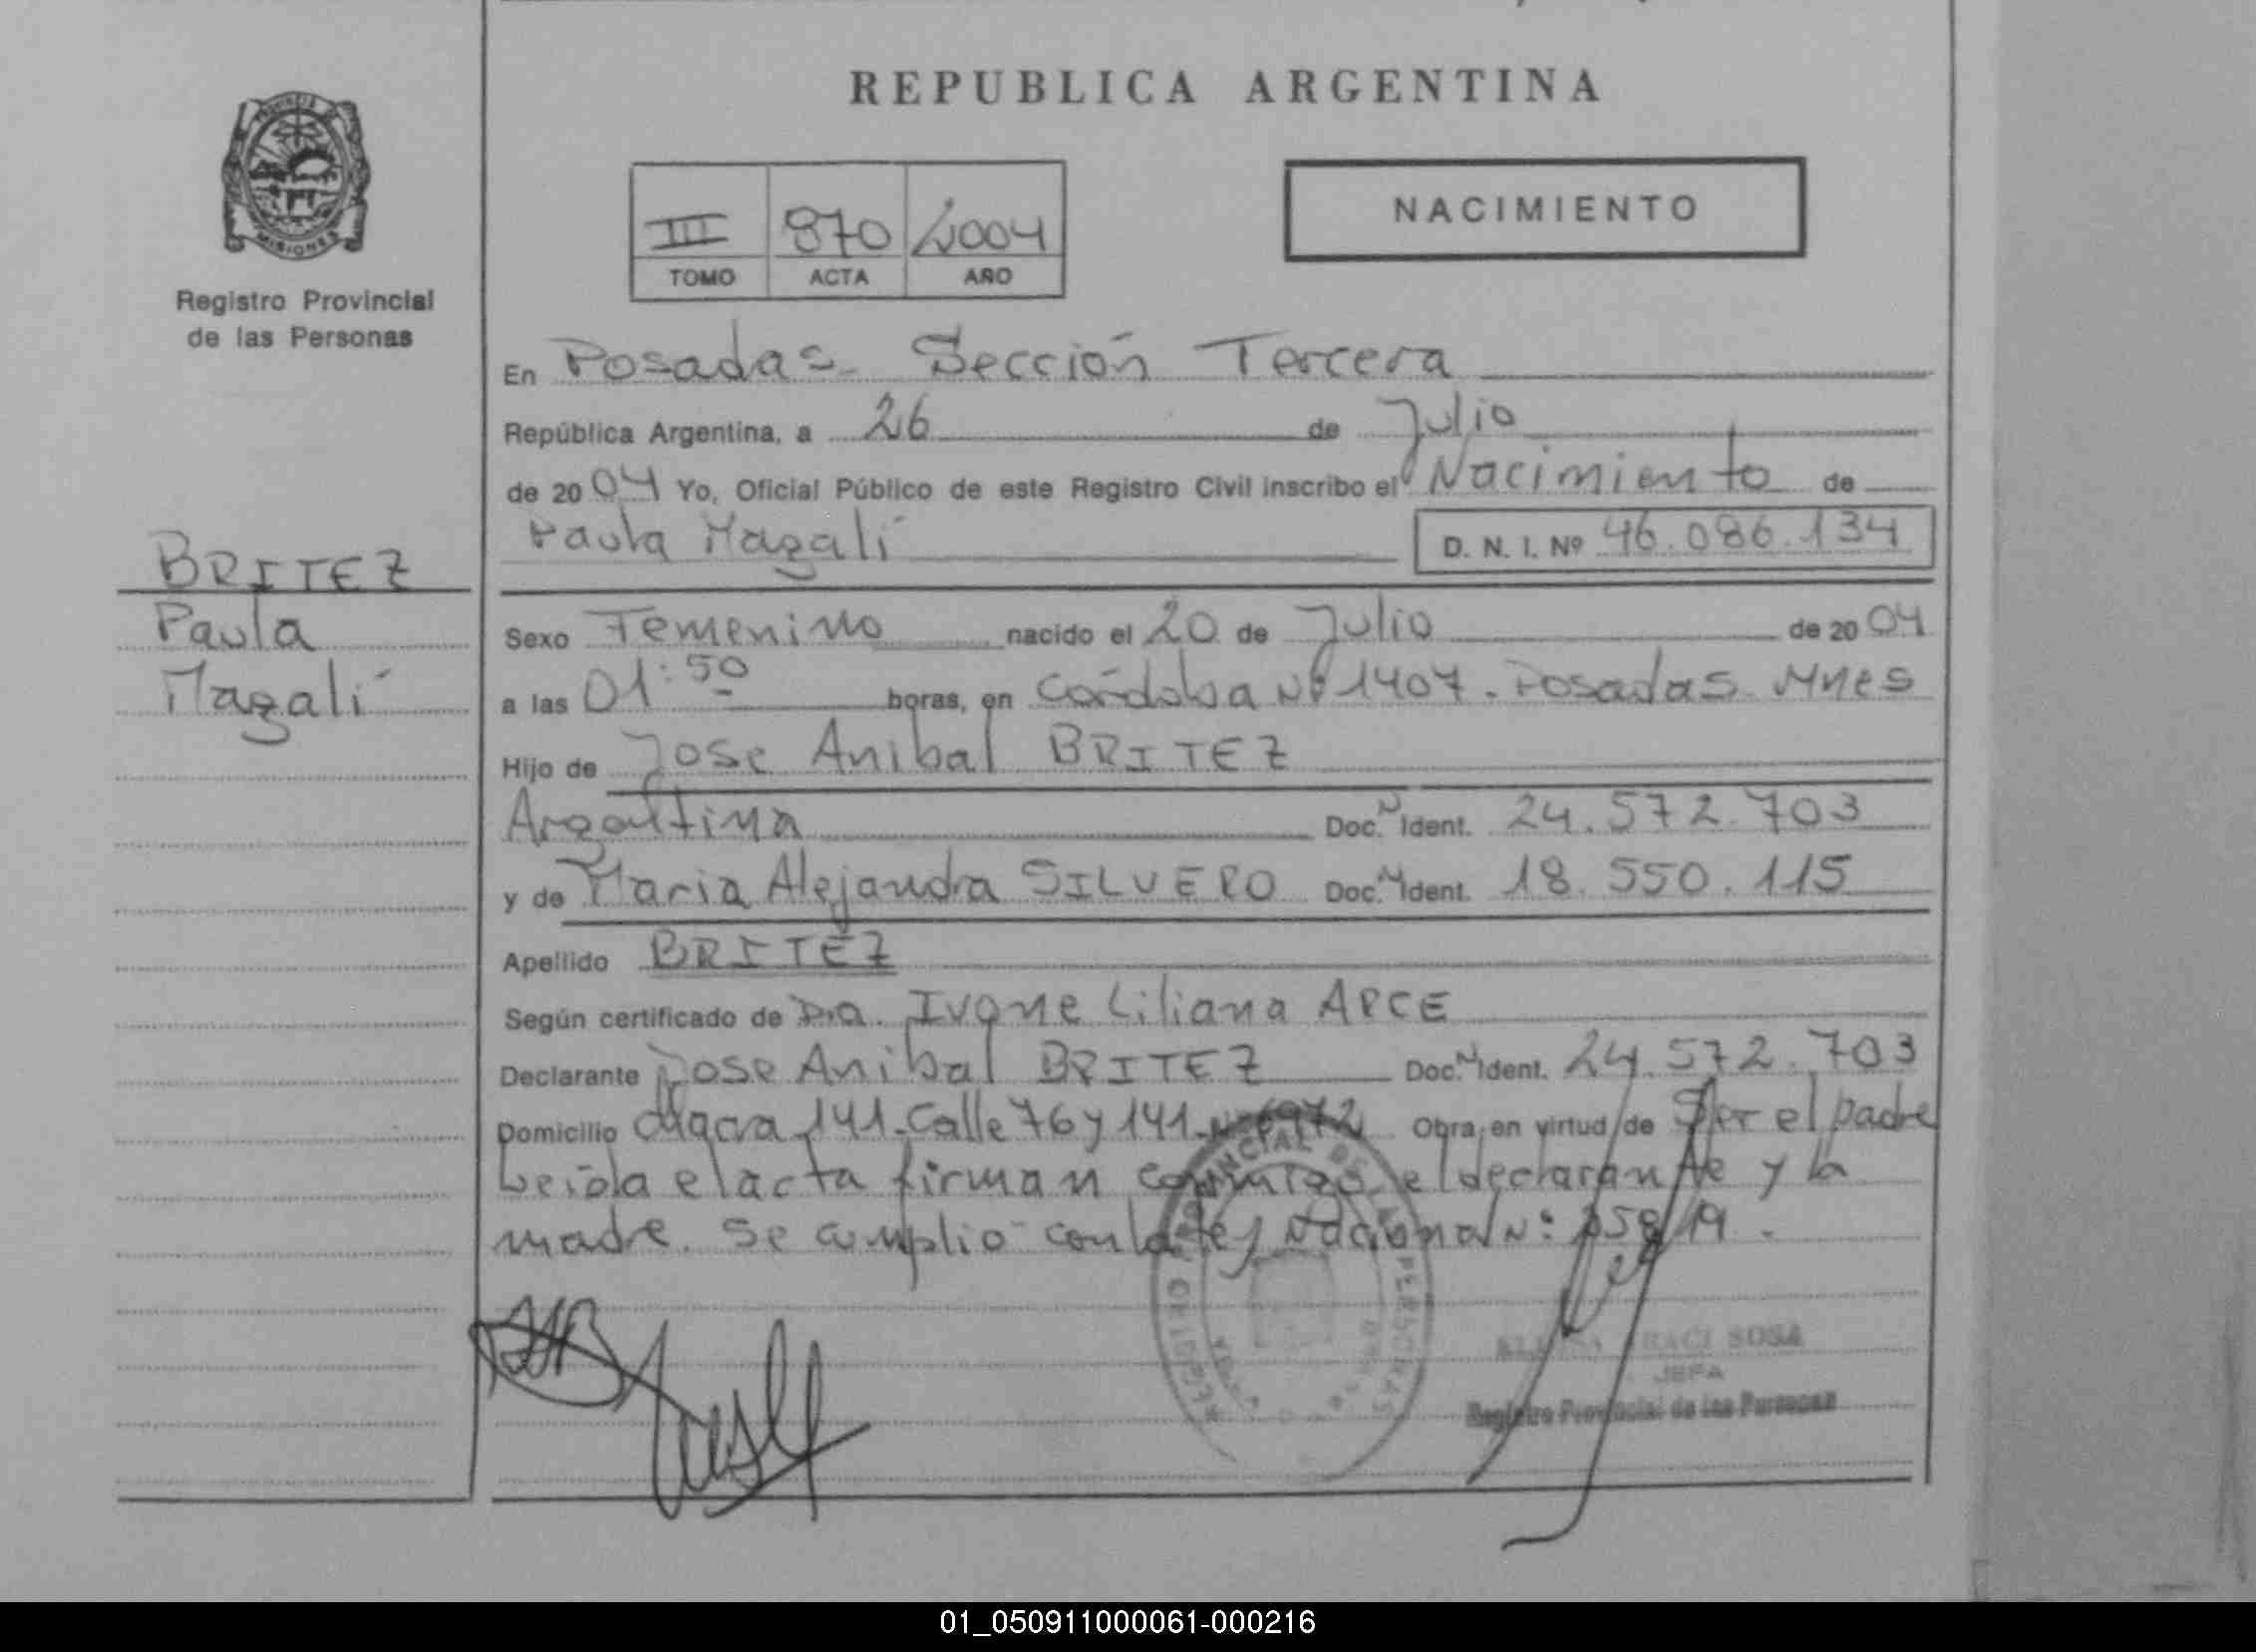 REPUBLICA ARGENTINA
PROVINCIA
MISIONES
Registro Provincial
de las Personas
III 870 2004
TOMO ACTA AÑO
NACIMIENTO
En Posadas Sección Tercera
República Argentina, a 26 de Julio
de 2004 Yo, Oficial Público de este Registro Civil inscribo el Nacimiento de
Paula Magalí D. N. I. Nº 46.086.134
BRITEZ
Paula
Magalí
Sexo Femenino nacido el 20 de Julio de 2004
a las 01:50 horas, en Córdoba Nº 1407. Posadas Mnes
Hijo de Jose Anibal BRITEZ
Argentina Doc. N Ident. 24.572.703
y de Maria Alejandra SILVERO Doc. N Ident. 18.550.115
Apellido BRITEZ
Según certificado de Dra. Ivone Liliana ARCE
Declarante Jose Anibal BRITEZ Doc. N Ident. 24.572.703
Domicilio chacra 141-Calle 76 y 141- Nº 6972 Obra en virtud de Ser el padre
Leida el acta firman conmigo el declarante y la
madre. Se cumplió con la Ley Nacional Nº: /19.
REGISTRO PROVINCIAL DE LAS PERSONAS
SOSA
JEFA
Registro Provincial de las Personas
01_050911000061-000216